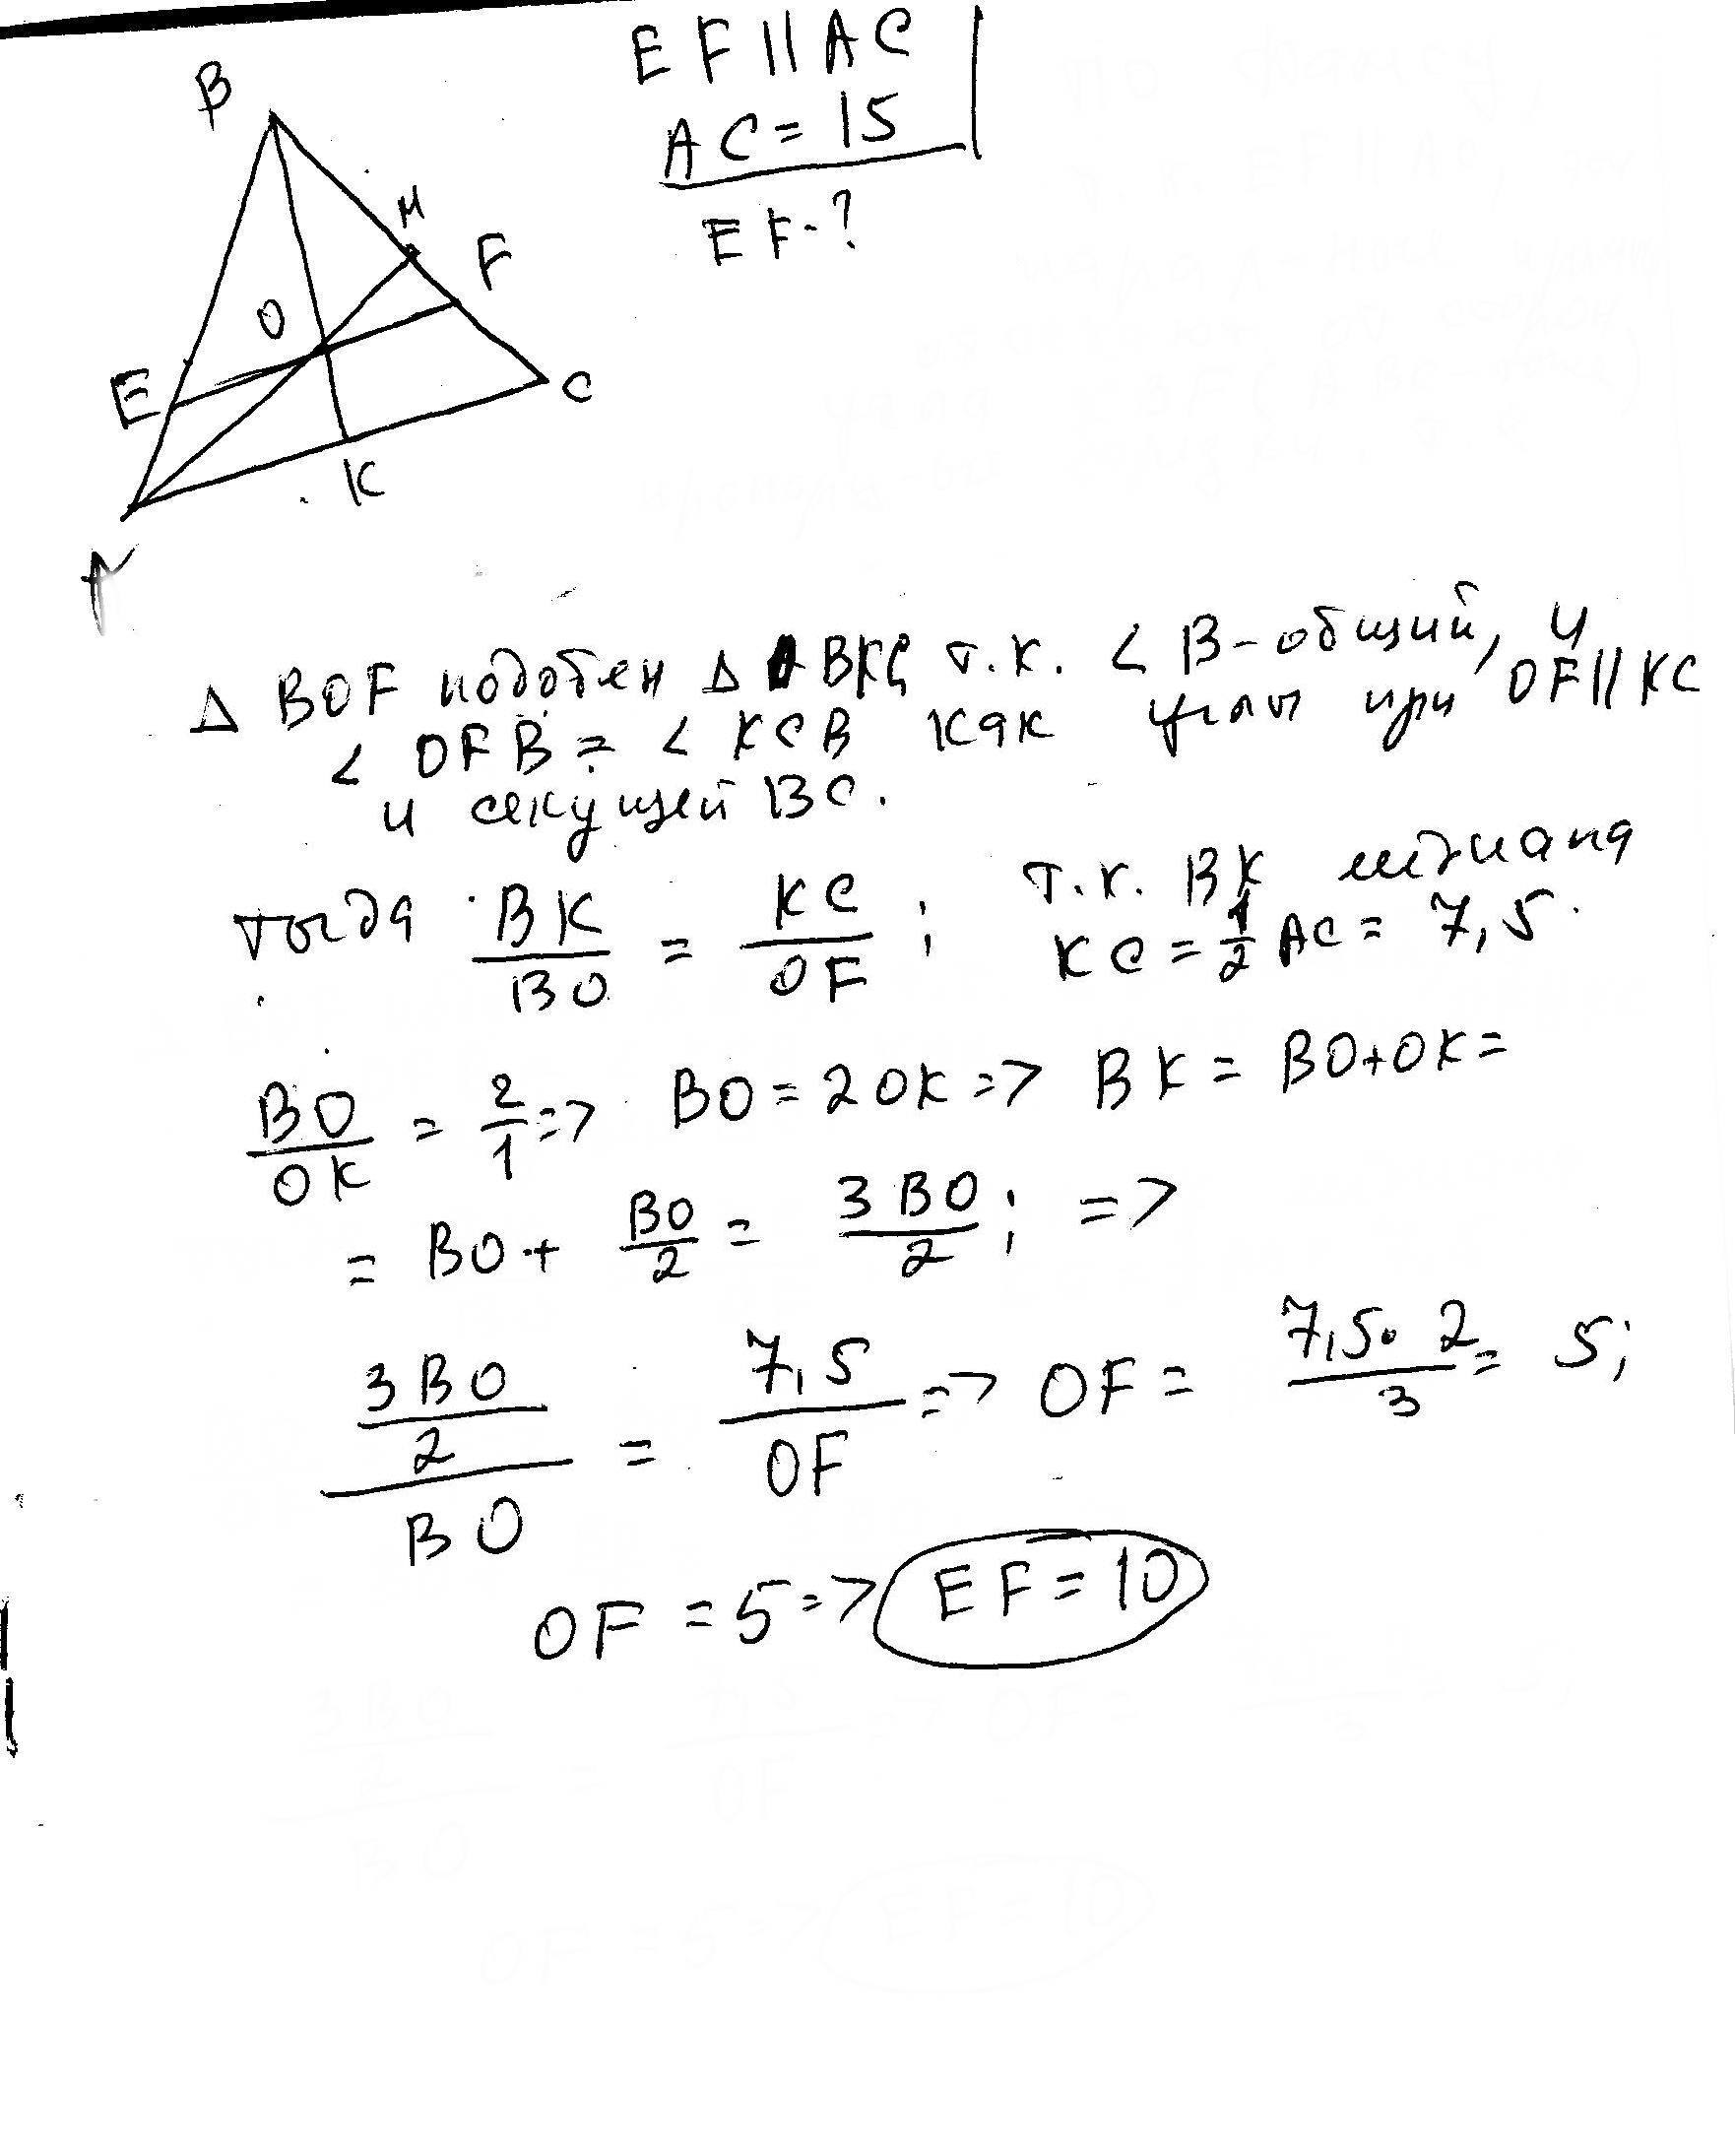 EF || AC
AC = 15
EF - ?
B
M
F
O
E
C
K
A
Δ BOF подобен Δ BKC т.к. < B - общий, и
< OFB = < KCB как углы при OF || KC
и секущей BC.
тогда BK/BO = KC/OF ; т.к. BK медиана
KC = 1/2 AC = 7,5.
BO/OK = 2/1 => BO = 2OK => BK = BO + OK =
= BO + BO/2 = 3BO/2 ; =>
(3BO/2)/BO = 7,5/OF => OF = 7,5 · 2/3 = 5;
OF = 5 => EF = 10